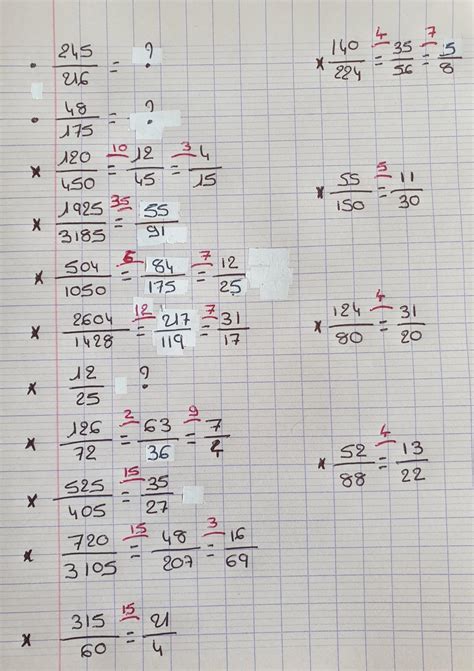 • 245/216 = ?
• 48/175 = ?
x 120/450 =(10) 12/45 =(3) 4/15
x 1925/3185 =(35) 55/91
x 504/1050 =(6) 84/175 =(7) 12/25
x 2604/1428 =(12) 217/119 =(7) 31/17
x 12/25 ?
x 126/72 =(2) 63/36 =(9) 7/4
x 525/405 =(15) 35/27
x 720/3105 =(15) 48/207 =(3) 16/69
x 315/60 =(15) 21/4
x 140/224 =(4) 35/56 =(7) 5/8
x 55/150 =(5) 11/30
x 124/80 =(4) 31/20
x 52/88 =(4) 13/22